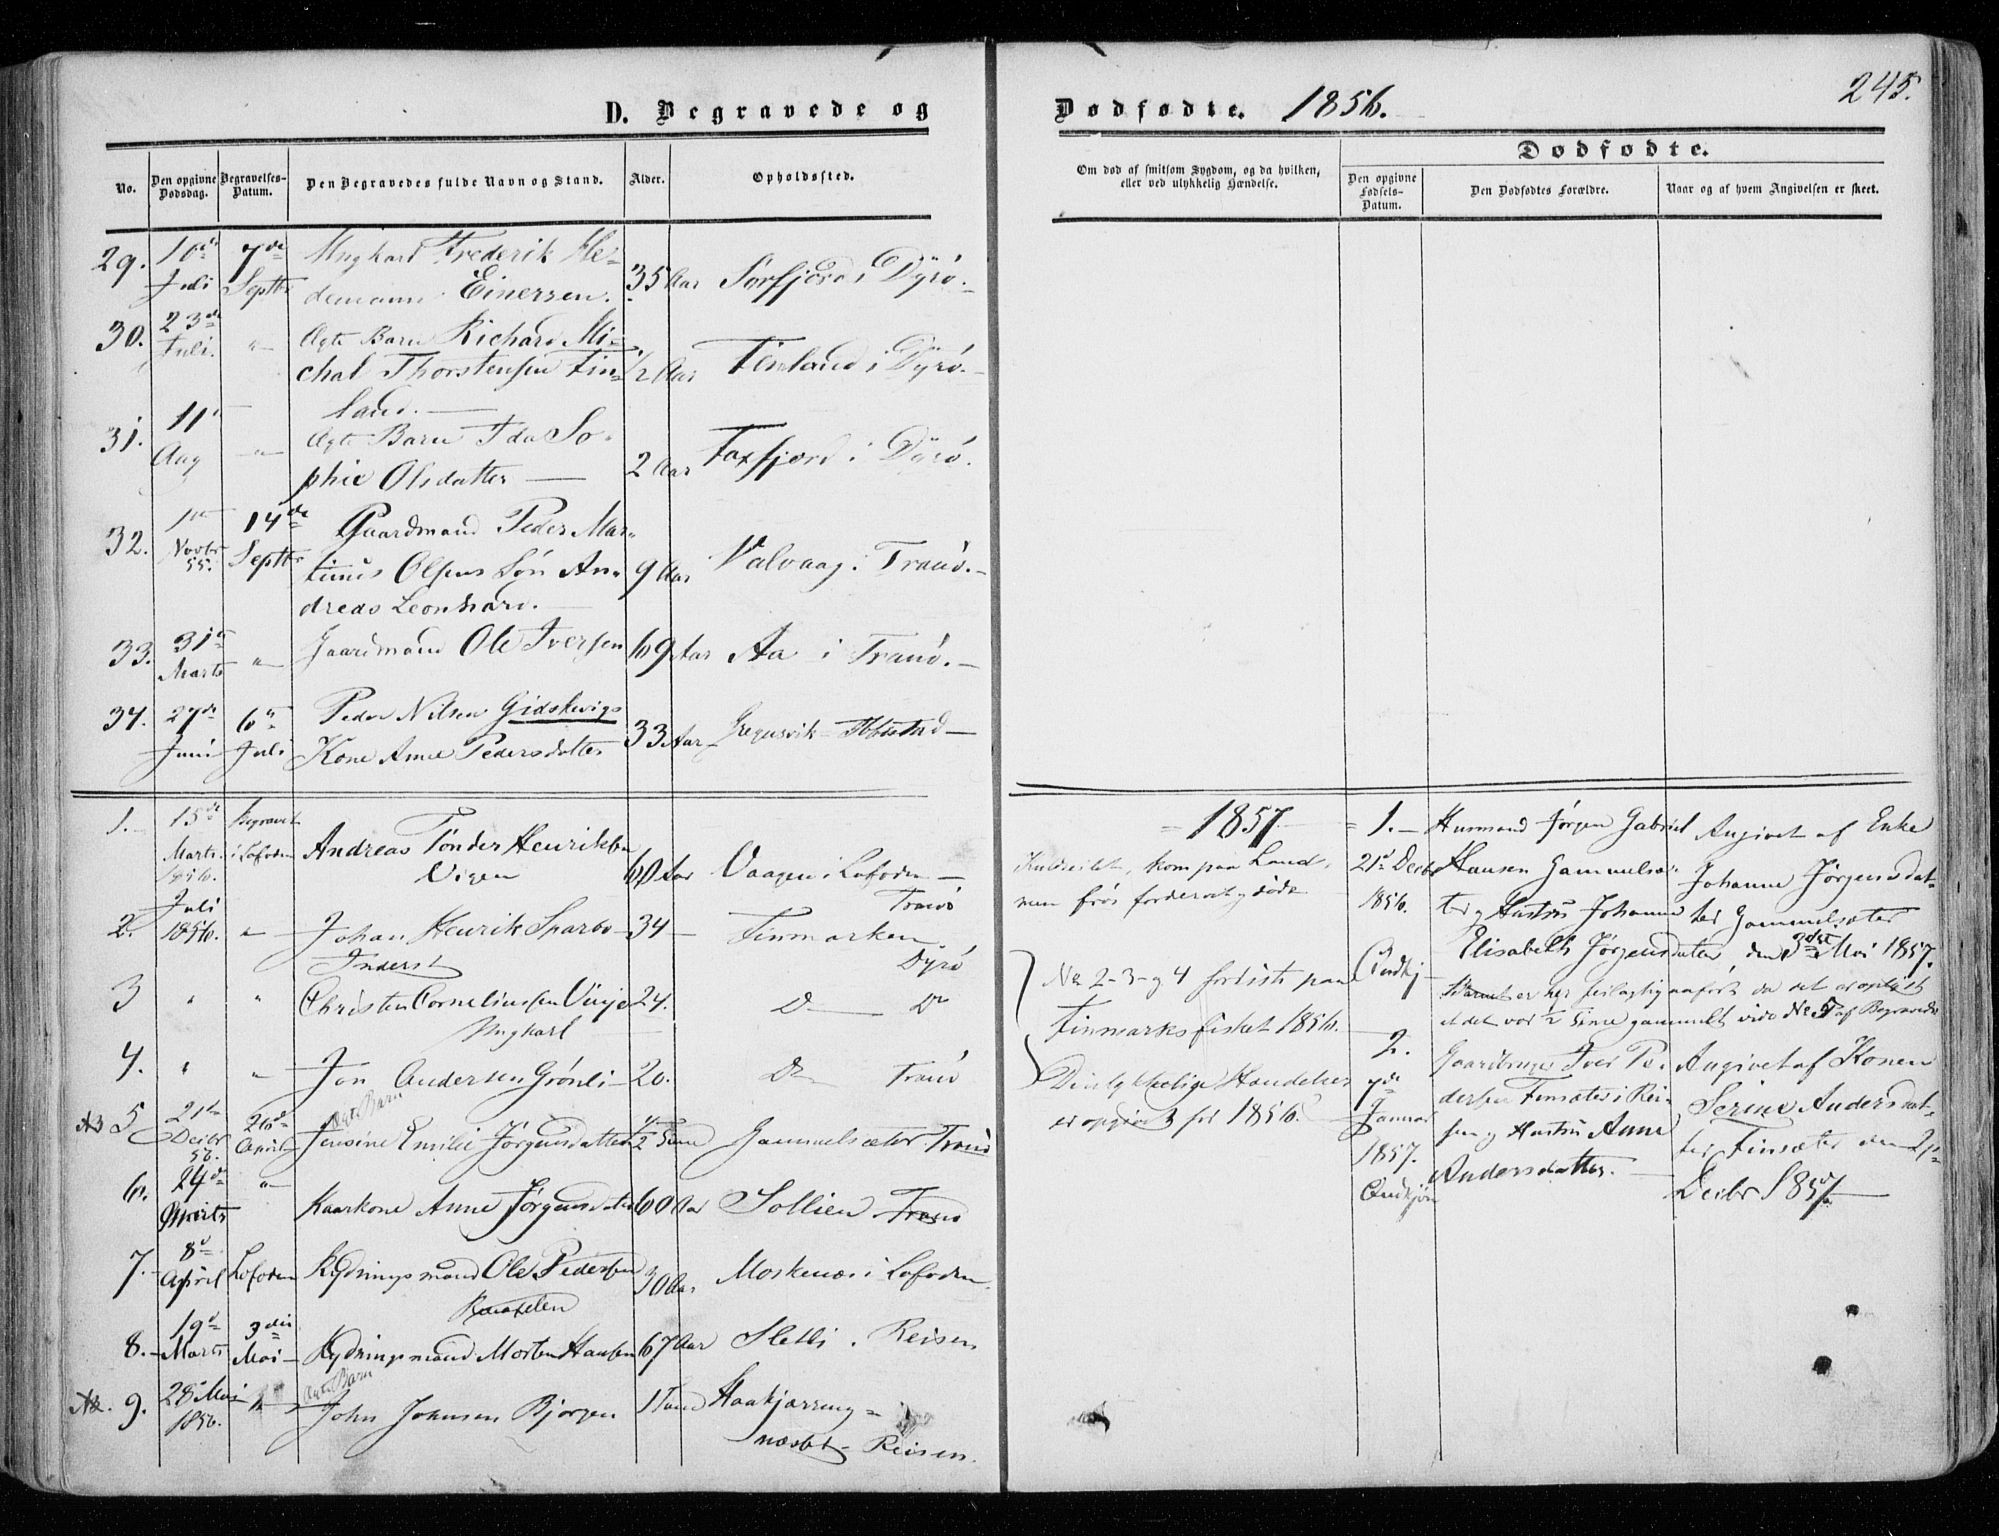 D. Begravede og
Dødfødte. 1856.
245.
No.
Den opgivne Dødsdag.
Begravelses-Datum.
Den Begravedes fulde Navn og Stand.
Alder.
Opholdssted.
Om død af smitsom Sygdom, og da hvilken, eller ved ulykkelig Hændelse.
Dødfødte.
Den opgivne Fødsels-Datum.
Den Dødfødtes Forældre.
Naar og af hvem Angivelsen er skeet.
29. 10de Juli 7de Septbr Ungkarl Frederik He-
demann Einersen. 35 Aar Sørfjord i Dyrø.
30. 23de Juli. " Ægte Barn Richard Mi-
chal Thorstensen Fin- 1/2 Aar Finland i Dyrø.
land.
31. 11te Aug " Ægte Barn Ida So-
phie Olsdatter 2 Aar Faxfjord i Dyrø.
32. 1te Novbr 55. 14de Septbr Gaardmand Peder Mar-
tinus Olsens Søn An- 9 Aar Valvaag i Tranø.
dreas Leonhard.
33. 31te Marts " Gaardmand Ole Iversen 69 Aar Aa i Tranø.
34. 27de Juni 6te Juli Peder Nilsen Gidskevigs
Kone Anne Pedersdatter 33 Aar Gregusvik Ibbestad
1. 15de Marts 1856. Begravet i Lofoden Andreas Tønder Henriksen
Vigen 60 Aar Vaagen i Lofoden
Tranø
2. Juli 1856. " Johan Henrik Sparbo 34 Finmarken
Inderst Dyrø
3 " " Christen Corneliussen Vinje 24. Do Do
Ungkarl
4. " " Jon Andersen Grønli 20. Do Tranø
NB 5 21de Decbr 56. 26de April Ægte Barn
Jensine Emilie Jørgensdatter 1/2 Time Gammelsæter Tranø
6. 24de Marts " Kaarkone Anne Jørgensdatter 60 Aar Sollien Tranø
7. 8de April Lofoden Rydningsmand Ole Pedersen 30 Aar Moskenæs i Lofoden
8. 19de Marts 3die Mai Rydningsmand Morten Hansen 67 Aar Sletli i Reisen
9. 28de Mai 1856. " Ægte Barn
John Johnsen Bjørgen 1 Time Haakjærring-
næsset Reisen.
1857.
kom paa Land,
men frøs fordervet døde
No 2-3-og 4 forliste paa
Finmarksfisket 1856.
De ulykkelige Hændelser
er opgivet for 1856.
1. Husmand Jørgen Gabriel Angivet af Enke
21de Decbr 1856. Hansen Gammelsæ- Johanne Jørgensdat-
ter og Hustru Johanne ter Gammelsæter
Elisabeth Jørgensdatter, den 3die Mai 1857.
Barnet er her feilagtig anført, da det er oplyst
at det var 1/2 Time gammelt, vide No 5 af Begravede
2. Gaardbruger Iver Pe- Angivet af Konen
7de Januar 1857. dersen Finsæter i Rei- Serine Andersdat-
sen og Hustru Anne ter Finsæter den 21de
Andersdatter. Decbr 1857